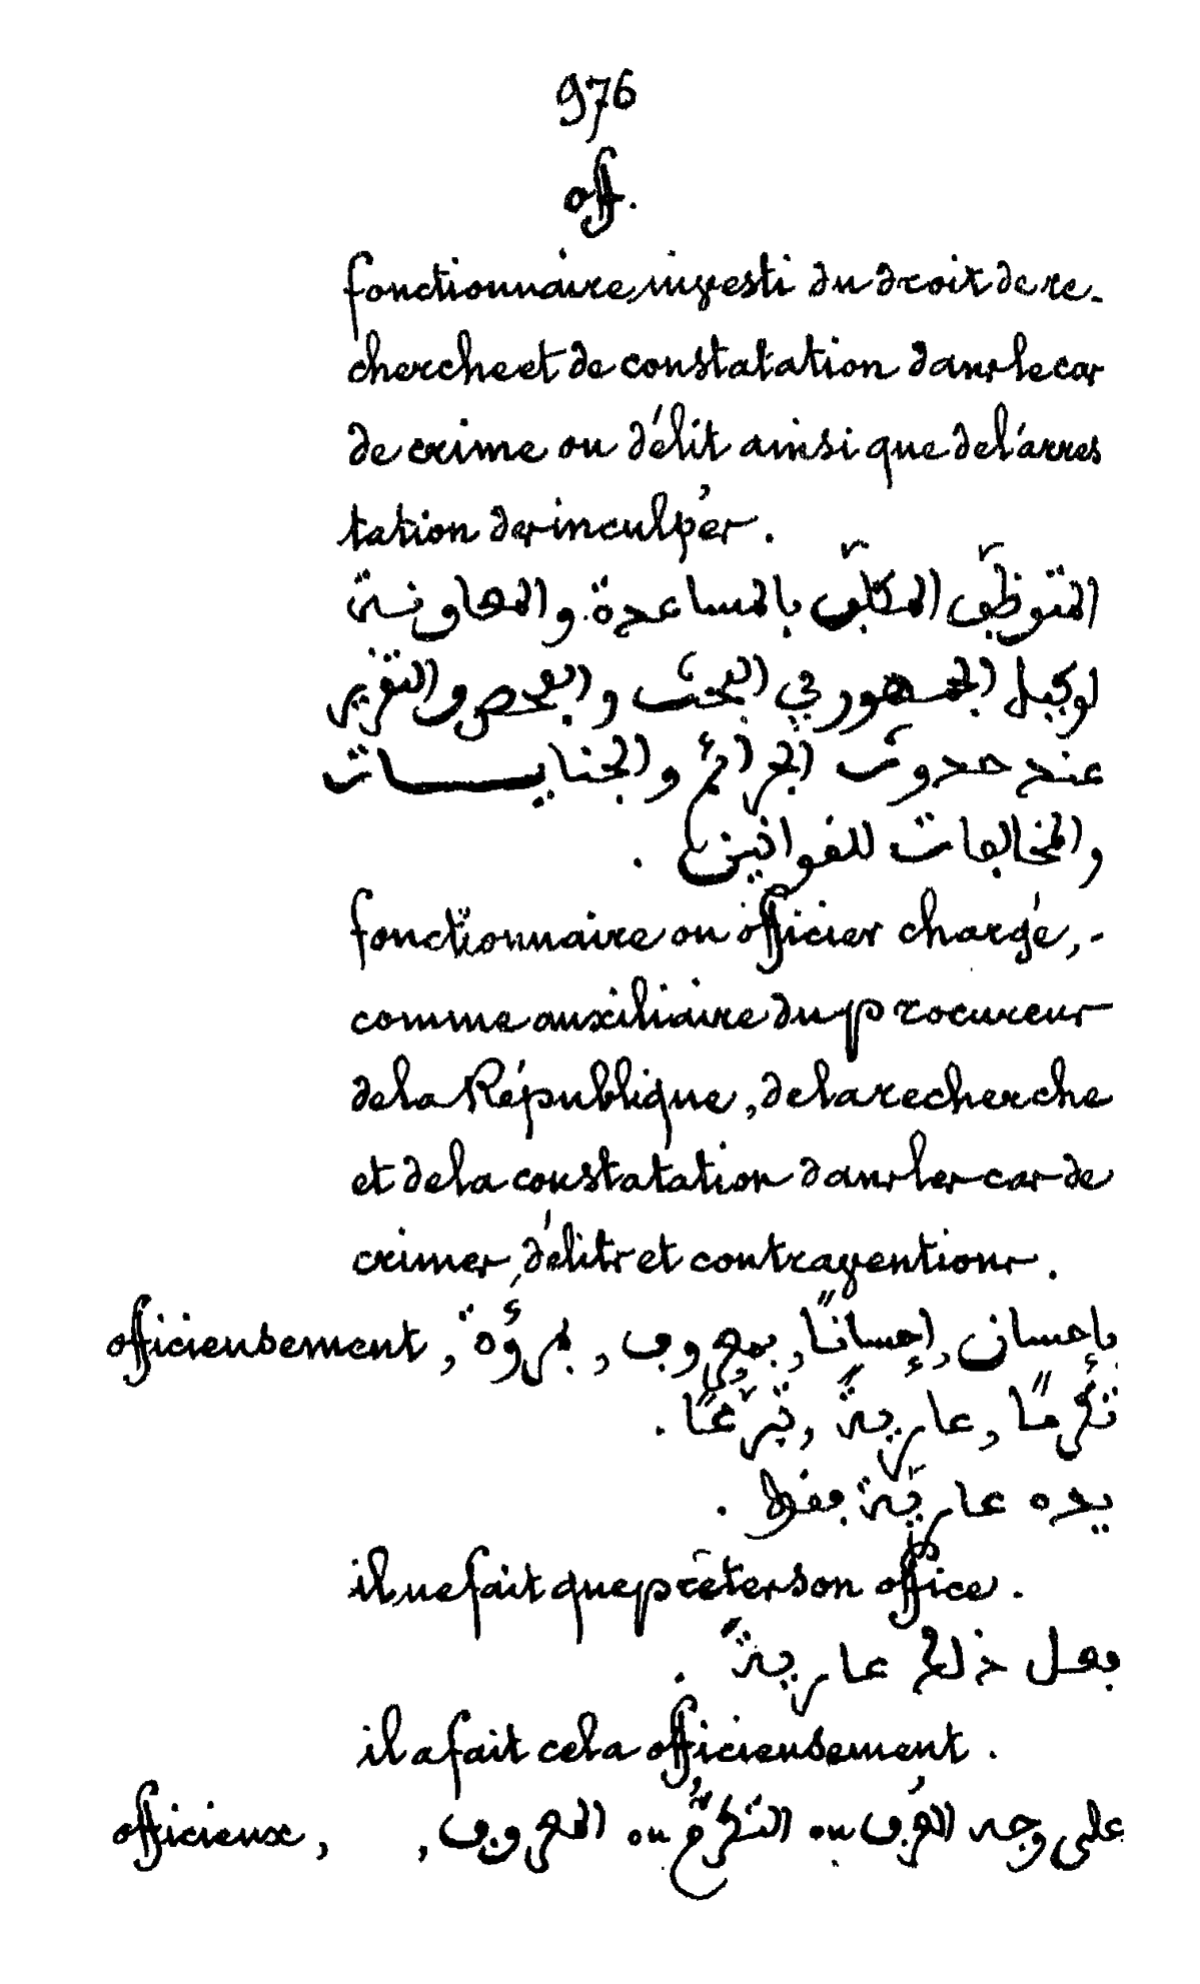 976
off.
fonctionnaire, investi du droit de re-
cherche et de constatation dans le cas
de crime ou délit ainsi que de l'arres
tation des inculpés.
المتوظّف المكلّف بالمساعدة والمعاونة
لوكيل الجمهور في البحث والفحص والتقرير
عند حدوث الجرائم والجنايات
والمخالفات للقوانين .
fonctionnaire ou officier chargé, -
comme auxiliaire du procureur
de la République, de la recherche
et de la constatation dans les cas de
crimes, délits et contraventions.
officieusement, بإحسان, إحسانًا, بمعروف, بمروُءة,
تكَرّمًا, عاريةً, تبرّعًا .
يده عاريّة فقط .
il ne fait que prêter son office.
فعل ذلك عاريةً .
il a fait cela officieusement.
officieux, على وجه العُرف ou التكرُّم ou المعروف,